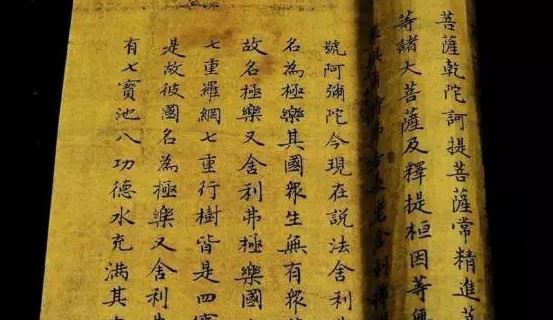 菩薩乾陀訶提菩薩常精進菩
等諸大菩薩及釋提桓因等無
長老舍利弗
號阿彌陀今現在説法舍利
名為極樂其國眾生無有眾
故名極樂又舍利弗極樂國
七重羅網七重行樹皆是四寶
是故彼國名為極樂又舍利
有七寶池八功德水充滿其